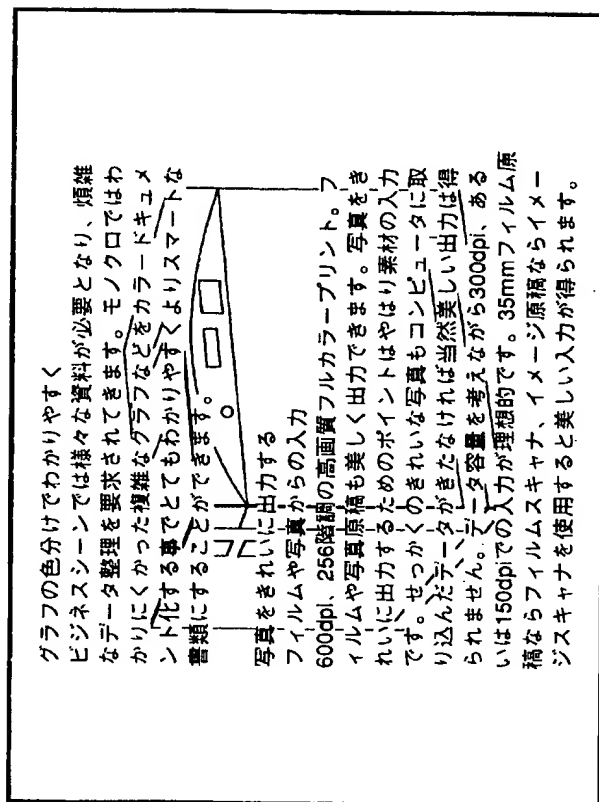 グラフの色分けでわかりやすく
ビジネスシーンでは様々な資料が必要となり、煩雑
なデータ整理を要求されてきます。モノクロではわ
かりにくかった複雑なグラフなどをカラードキュメ
ント化する事でとてもわかりやすくよりスマートな
書類にすることができます。
写真をきれいに出力する
フィルムや写真からの入力
600dpi、256階調の高画質フルカラープリント。フ
ィルムや写真原稿も美しく出力できます。写真をき
れいに出力するためのポイントはやはり素材の入力
です。せっかくのきれいな写真もコンピュータに取
り込んだデータがきたなければ当然美しい出力は得
られません。データ容量を考えながら300dpi、ある
いは150dpiでの入力が理想的です。35mmフィルム原
稿ならフィルムスキャナ、イメージ原稿ならイメー
ジスキャナを使用すると美しい入力が得られます。